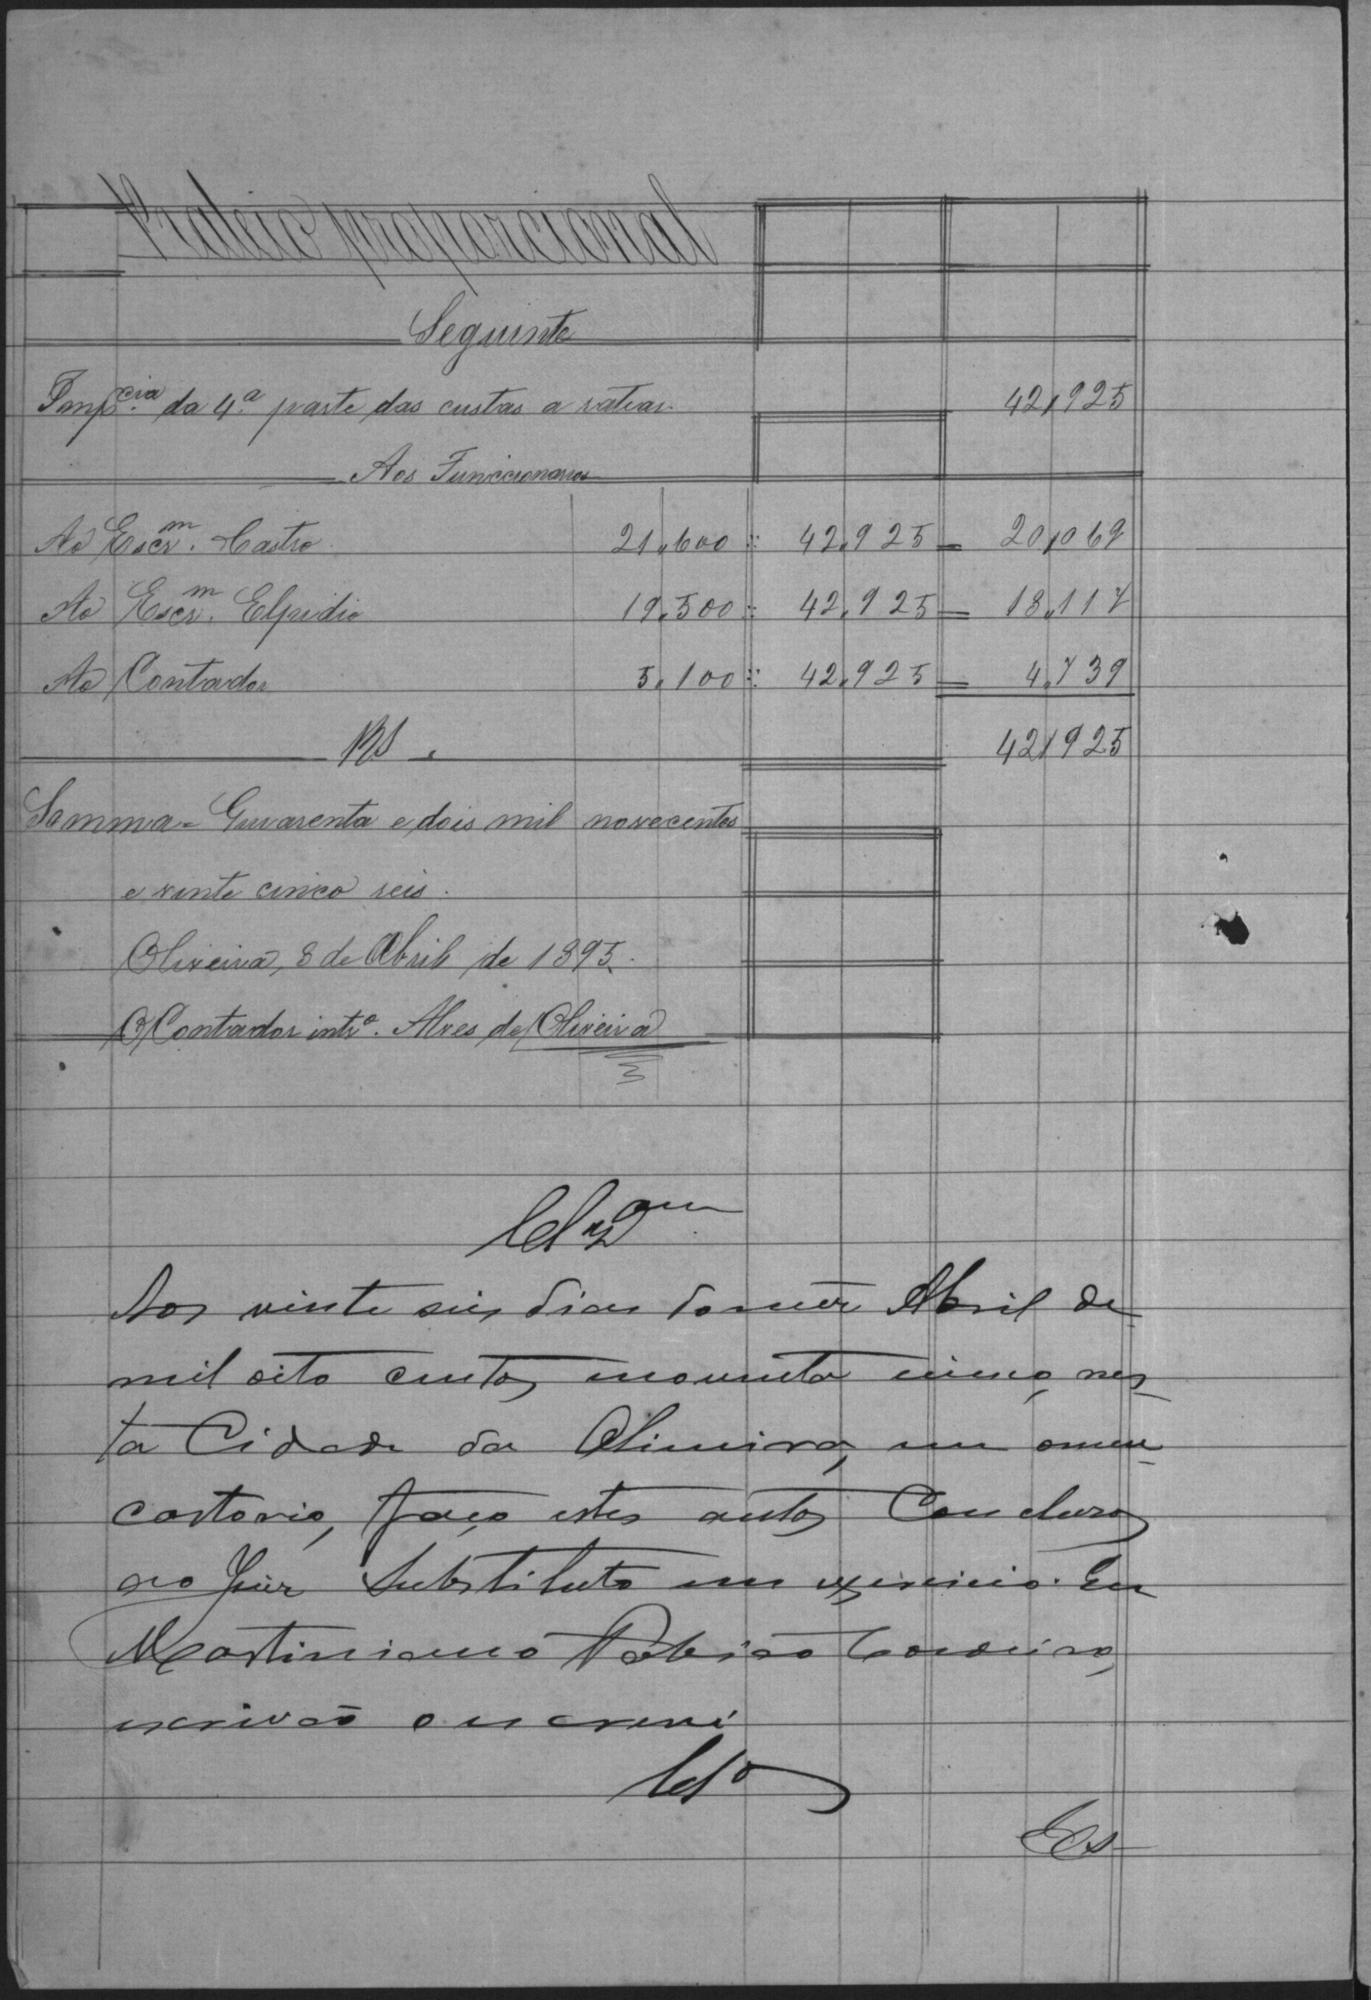 Rateio proporcional
Seguinte
Impcia. da 4.a parte das custas a ratear. 42,925
Aos Funccionarios
Ao Escrm. Castro. 21.600 :: 42.925 = 20,069
Ao Escrm. Elpidio 19.500 :: 42.925 = 18.117
Ao Contador 5.100 :: 42.925 = 4.739
RS. 42,925
Somma = Quarenta e dois mil novecentos
e vinte cinco reis.
Oliveira, 8 de Abril de 1895.
O Contador intro. Alves de Oliveira
Clzam
Aos vinte seis dias do mez Abril de
mil oito centos noventa cinco, nes-
ta Cidade da Oliveira, em o meu
cartorio, faço estes autos Conclusos
ao Juiz Substituto em exercicio. Eu
Martiniano Ribeiro Cordeiro,
escrivão o escrevi
Clso